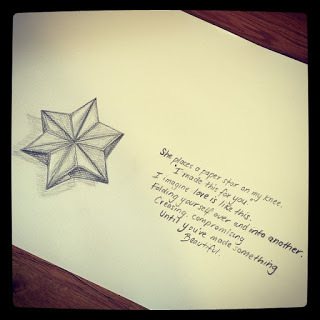 She places a paper star on my knee.
"I made this for you."
I imagine love is like this.
Folding yourself over and into another.
Creasing, compromising
Until you've made something
Beautiful.